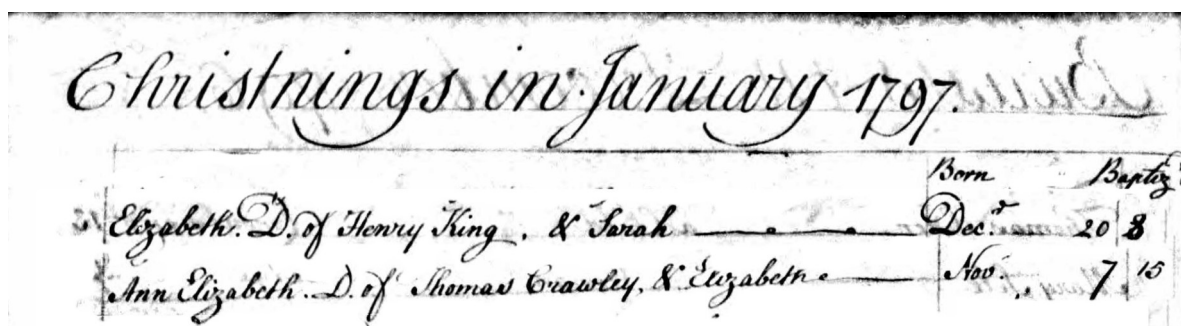 Christnings in January 1797.
Born Baptiz'd
Elizabeth. D. of Henry King, & Sarah Decr 20 8
Ann Elizabeth. D. of Thomas Crawley, & Elizabeth Nov. 7 15